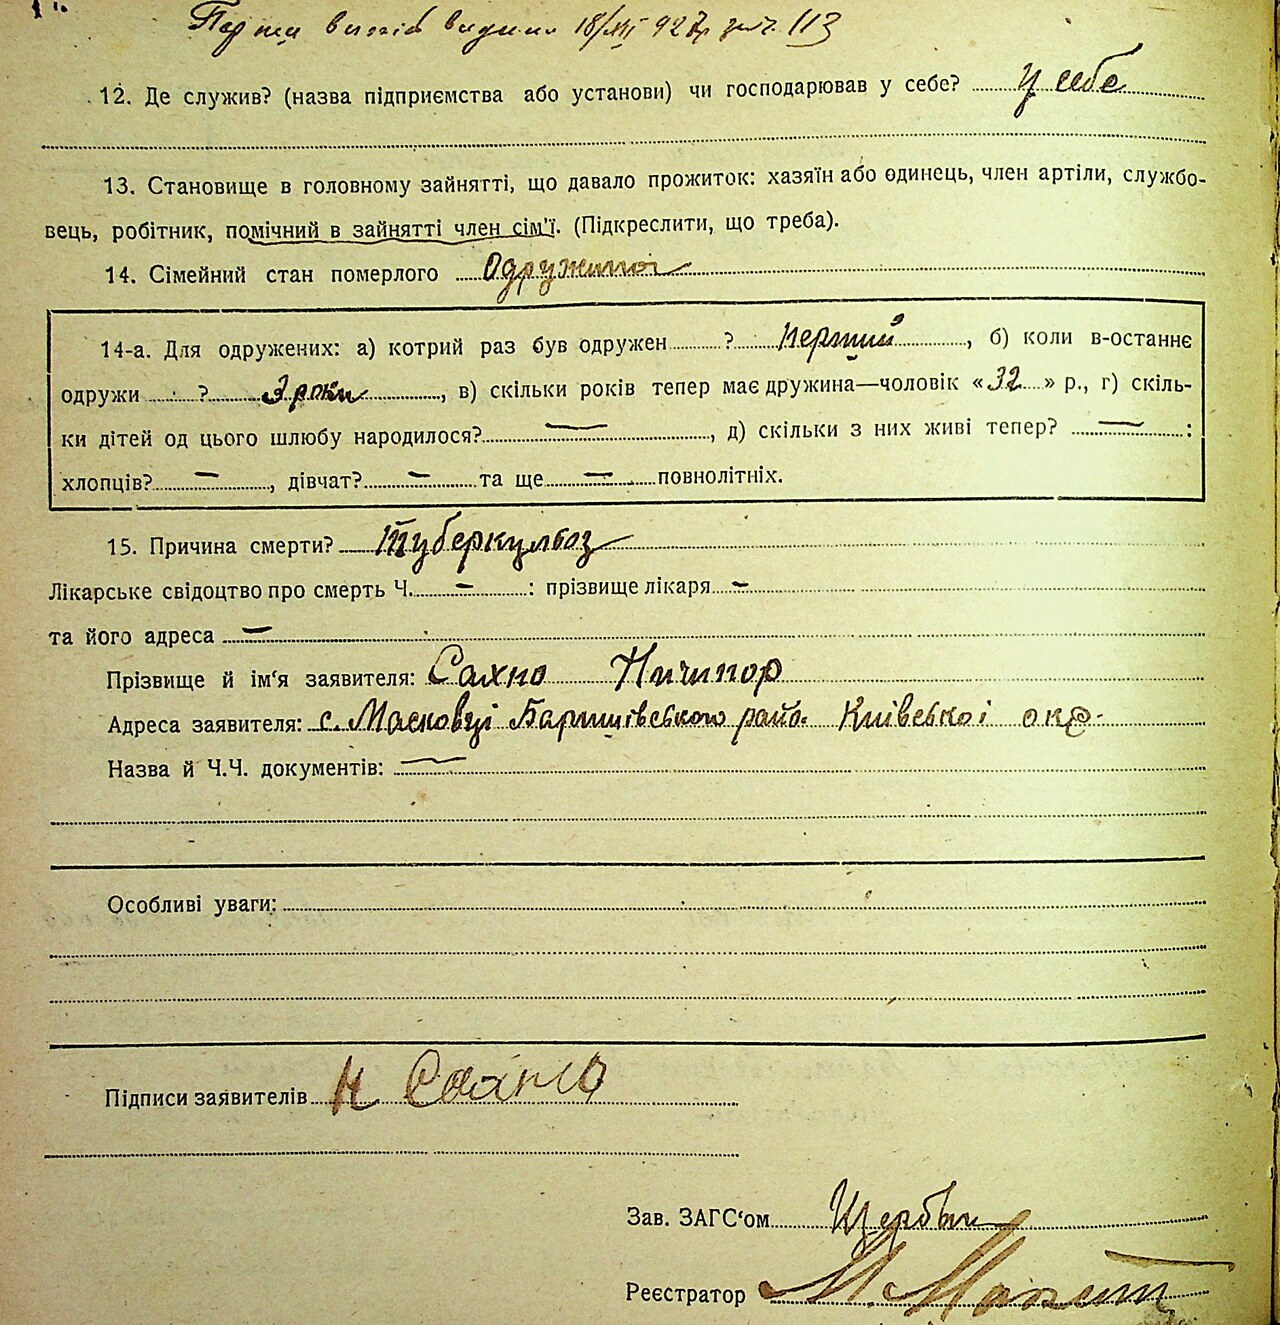 випис 18/XII 927р 113
12. Де служив? (назва підприємства або установи) чи господарював у себе? у себе
13. Становище в головному зайнятті, що давало прожиток: хазяїн або одинець, член артіли, службо-
вець, робітник, помічний в зайнятті член сім'ї. (Підкреслити, що треба).
14. Сімейний стан померлого
14-а. Для одружених: а) котрий раз був одружен ? перший, б) коли в-останнє
одружи ? 3 роки, в) скільки років тепер має дружина—чоловік «32» р., г) скіль-
ки дітей од цього шлюбу народилося? —, д) скільки з них живі тепер? — :
хлопців? —, дівчат? — та ще — повнолітніх.
15. Причина смерти? Туберкульоз
Лікарське свідоцтво про смерть Ч. — : прізвище лікаря —
та його адреса —
Прізвище й ім'я заявителя: Сахно Ничипор
Адреса заявителя: с. Масковці Баришівського райо. Київської окр.
Назва й Ч.Ч. документів: —
Особливі уваги:
Підписи заявителів Н Сахно
Зав. ЗАГС'ом
Реєстратор